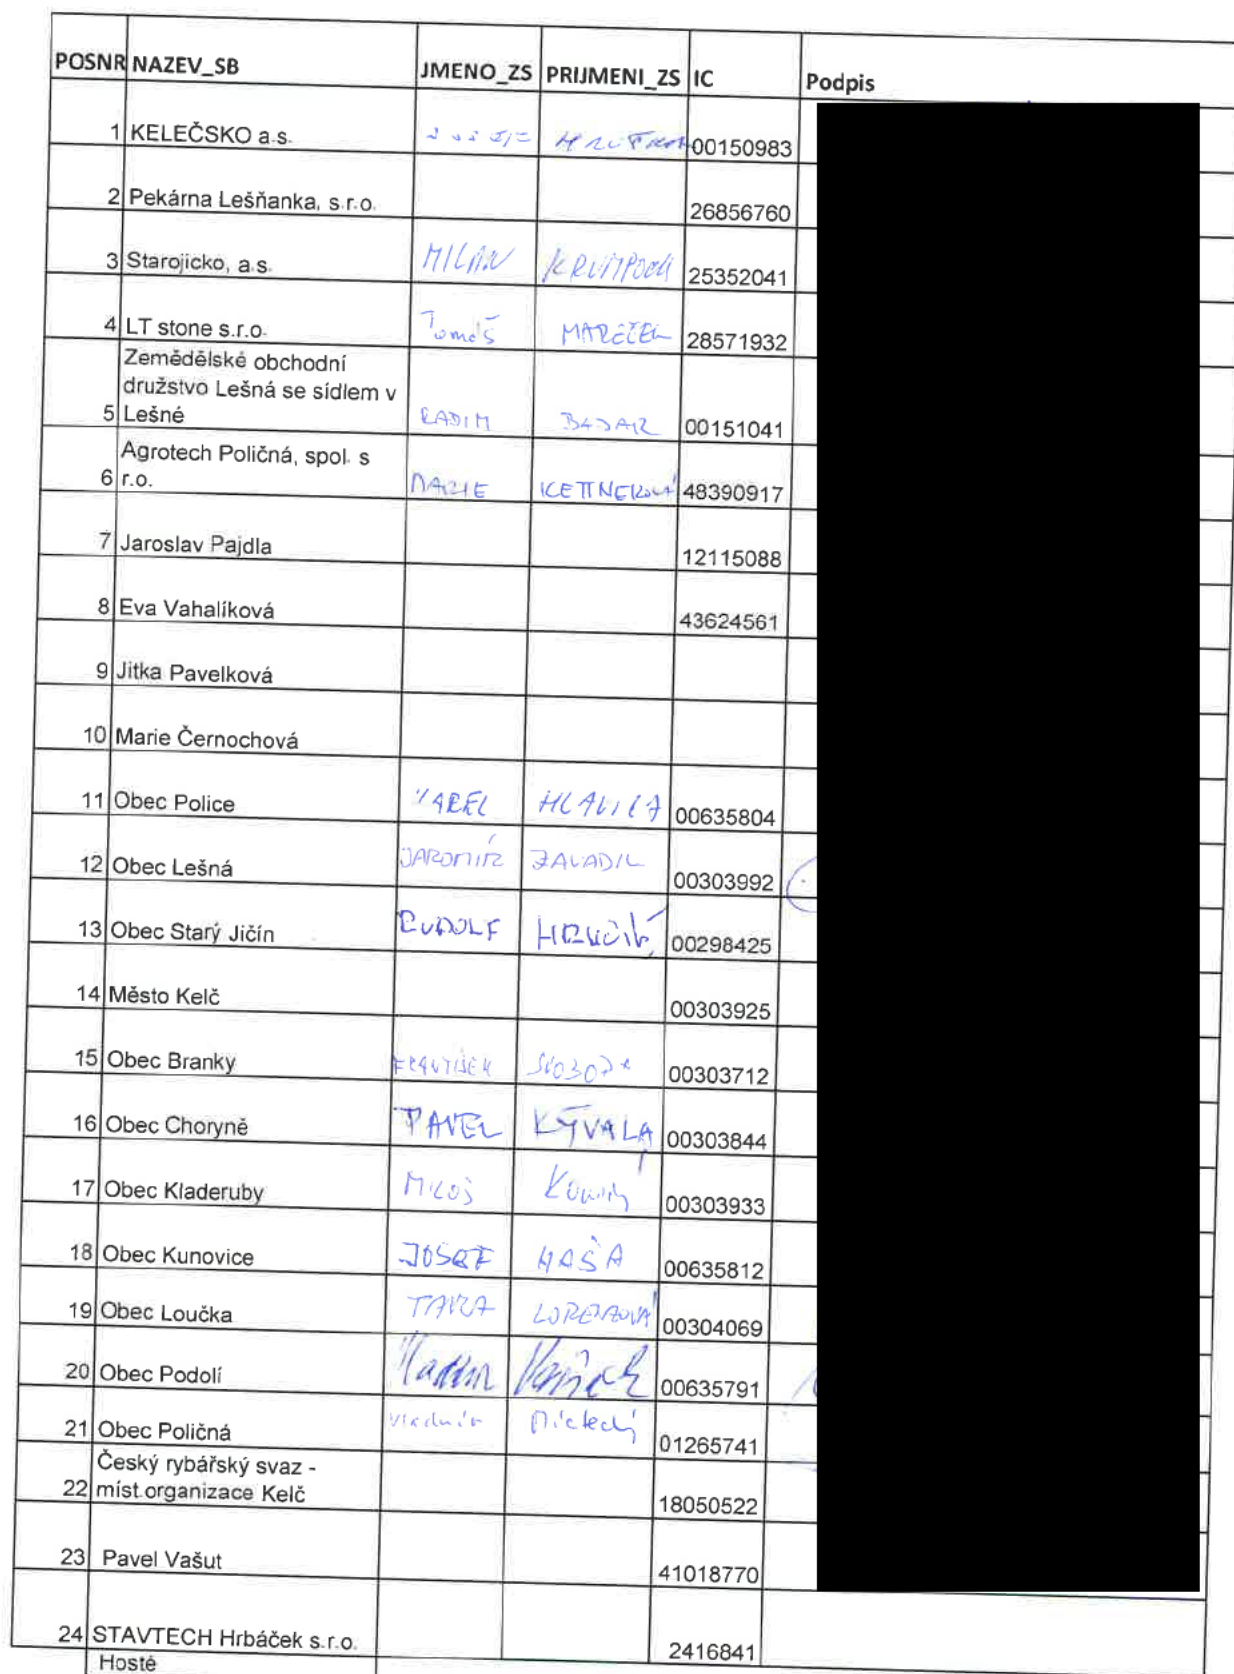 POSNR NAZEV_SB JMENO_ZS PRIJMENI_ZS IC Podpis
1 KELEČSKO a.s. 00150983
2 Pekárna Lešňanka, s.r.o. 26856760
3 Starojicko, a.s. MILAN KRUMPOCH 25352041
4 LT stone s.r.o. Tomáš MAREČEK 28571932
Zemědělské obchodní
družstvo Lešná se sídlem v
5 Lešné RADIM BADAR 00151041
Agrotech Poličná, spol. s
6 r.o. MARIE KETTNEROVÁ 48390917
7 Jaroslav Pajdla 12115088
8 Eva Vahalíková 43624561
9 Jitka Pavelková
10 Marie Černochová
11 Obec Police KAREL HLAVICA 00635804
12 Obec Lešná JAROMÍR ZAVADIL 00303992
13 Obec Starý Jičín RUDOLF 00298425
14 Město Kelč 00303925
15 Obec Branky FRANTIŠEK SVOBODA 00303712
16 Obec Choryně PAVEL KÝVALA 00303844
17 Obec Kladeruby MILOŠ 00303933
18 Obec Kunovice JOSEF HAŠA 00635812
19 Obec Loučka LORENZOVÁ 00304069
20 Obec Podolí 00635791
21 Obec Poličná Vladimír 01265741
Český rybářský svaz -
22 míst.organizace Kelč 18050522
23 Pavel Vašut 41018770
24 STAVTECH Hrbáček s.r.o. 2416841
Hosté